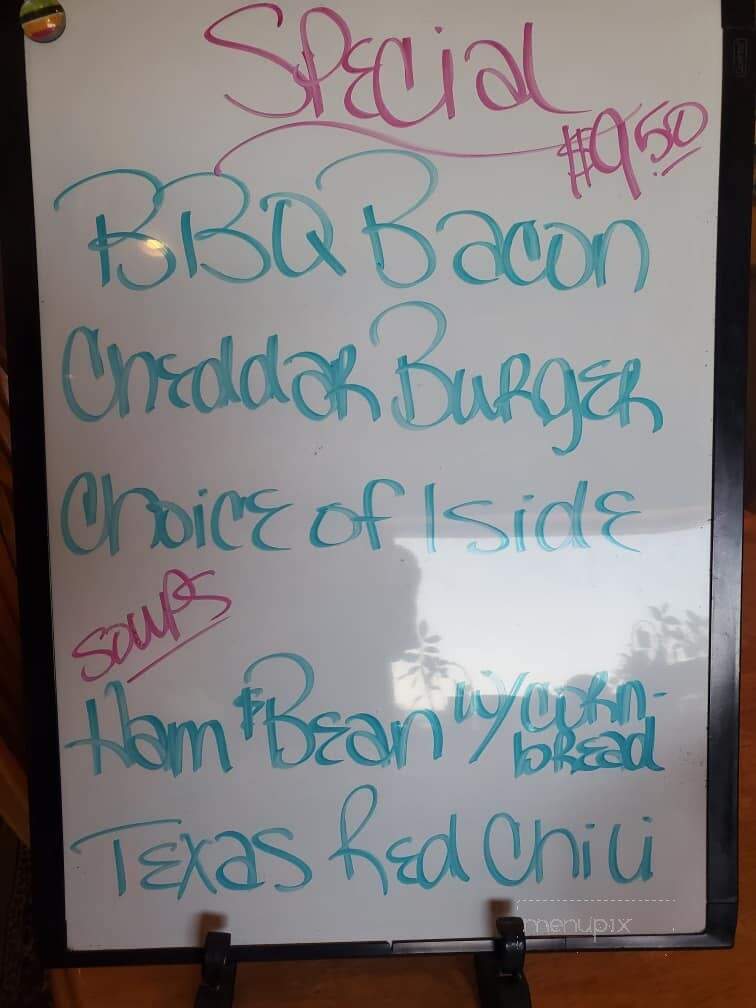 Special
$9.50
BBQ Bacon
Cheddar Burger
Choice of 1 side
Soups
Ham & Bean w/ corn-
bread
Texas Red Chili
menupix